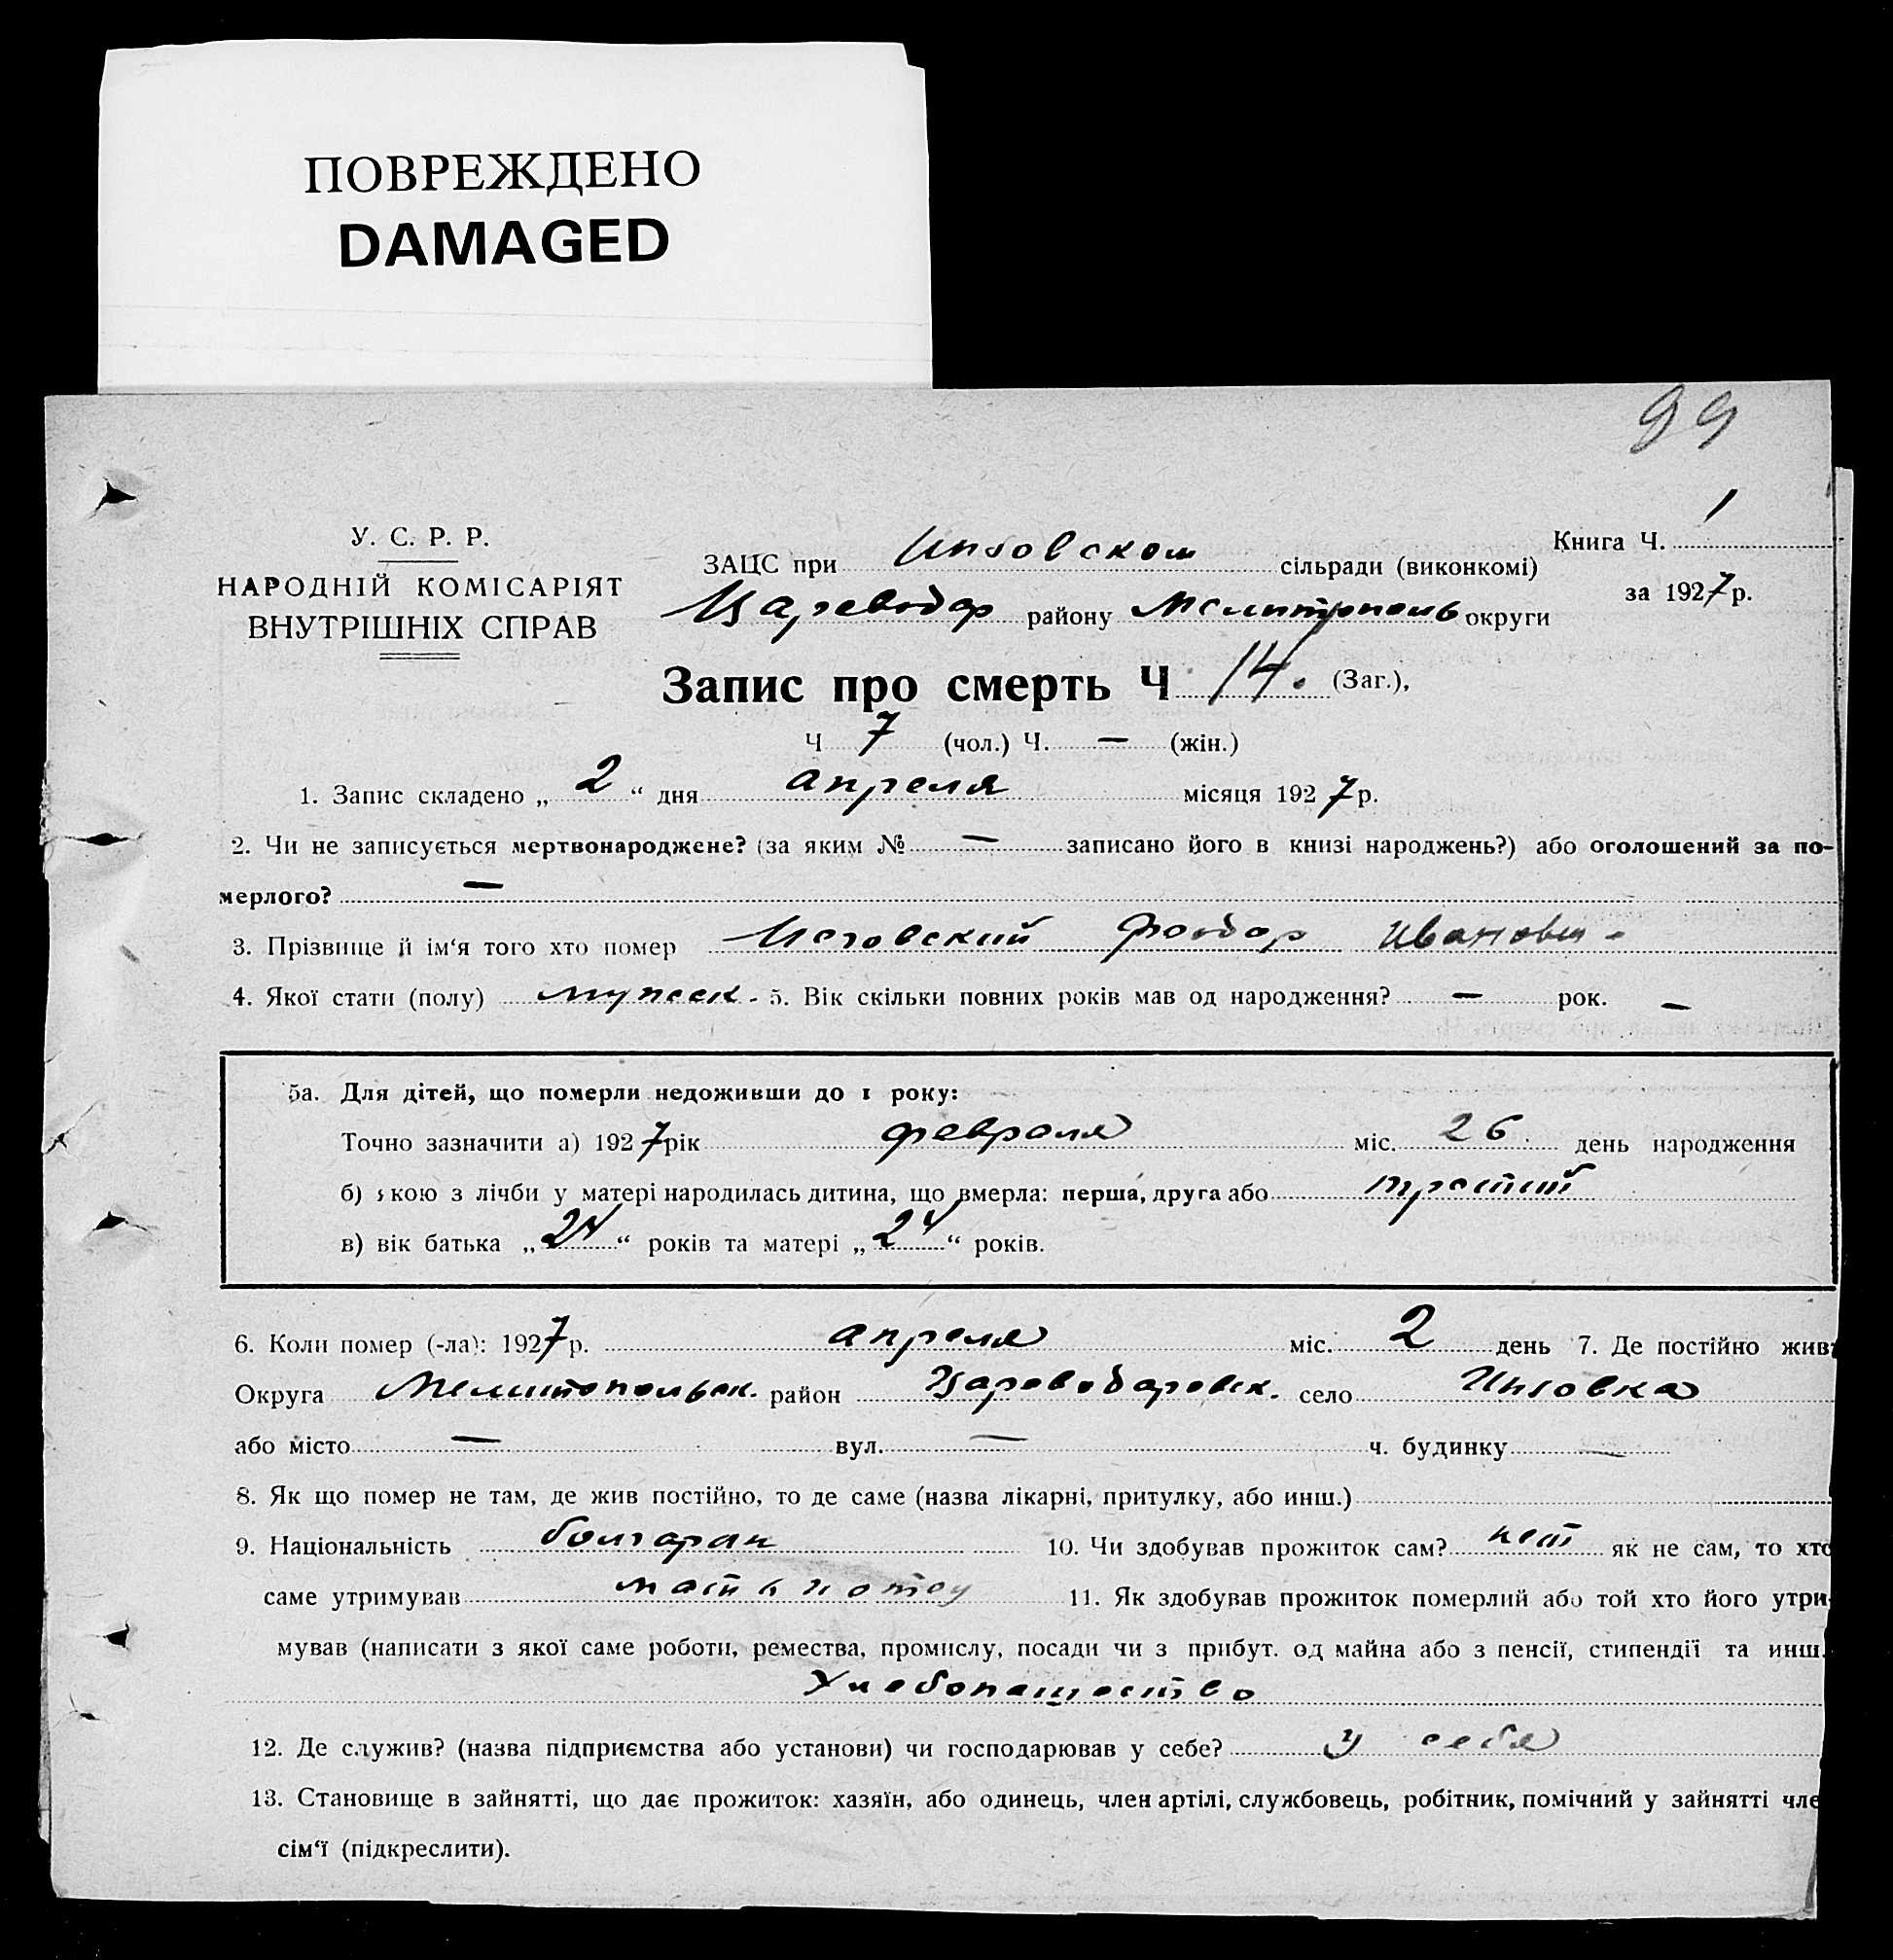 ПОВРЕЖДЕНО
DAMAGED
99
У. С. Р. Р.
НАРОДНІЙ КОМІСАРІЯТ
ВНУТРІШНІХ СПРАВ
Книга Ч. 1
за 1927 р.
ЗАЦС при Инзовском сільради (виконкомі)
Цареводар району Мелитополь округи
Запис про смерть Ч 14. (Заг.),
Ч 7 (чол.) Ч. — (жін.)
1. Запис складено „ 2 “ дня апреля місяця 1927 р.
2. Чи не записується мертвонароджене? (за яким № — записано його в книзі народжень?) або оголошений за по-
мерлого? —
3. Прізвище й ім‘я того хто помер Фёодор Иванович
4. Якої стати (полу) мужеск. 5. Вік скільки повних років мав од народження? — рок. —
5а. Для дітей, що померли недоживши до 1 року:
Точно зазначити а) 1927 рік февраля міс. 26 день народження
б) якою з лічби у матері народилась дитина, що вмерла: перша, друга або третий
в) вік батька „ 24 “ років та матері „ 24 “ років.
6. Коли помер (-ла): 1927 р. апреля міс. 2 день 7. Де постійно жив
Округа Мелитопольск. район Цареводаровск. село Инзовка
або місто — вул. — ч. будинку —
8. Як що помер не там, де жив постійно, то де саме (назва лікарні, притулку, або инш.)
9. Національність болгарин 10. Чи здобував прожиток сам? нет як не сам, то хто
саме утримував мать и отец 11. Як здобував прожиток померлий або той хто його утри-
мував (написати з якої саме роботи, ремества, промислу, посади чи з прибут. од майна або з пенсії, стипендії та инш.
Хлебопашество
12. Де служив? (назва підприємства або установи) чи господарював у себе? у себя
13. Становище в зайнятті, що дає прожиток: хазяїн, або одинець, член артілі, службовець, робітник, помічний у зайнятті чле
сім‘ї (підкреслити).